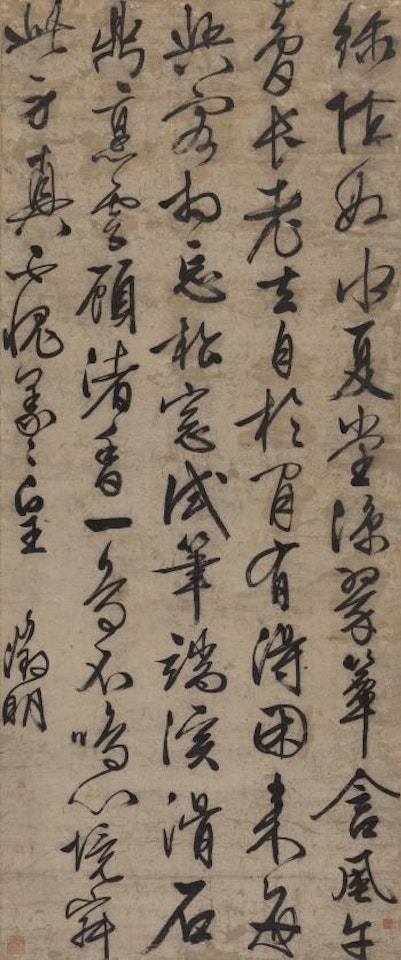 綠陰如水夏堂涼翠簟含風午
夢長老去自於閒有得困來每
與客相忘松窗試筆端溪滑石
鼎烹雲顧渚香一鳥不鳴心境寂
此身真不愧羲皇
徵明